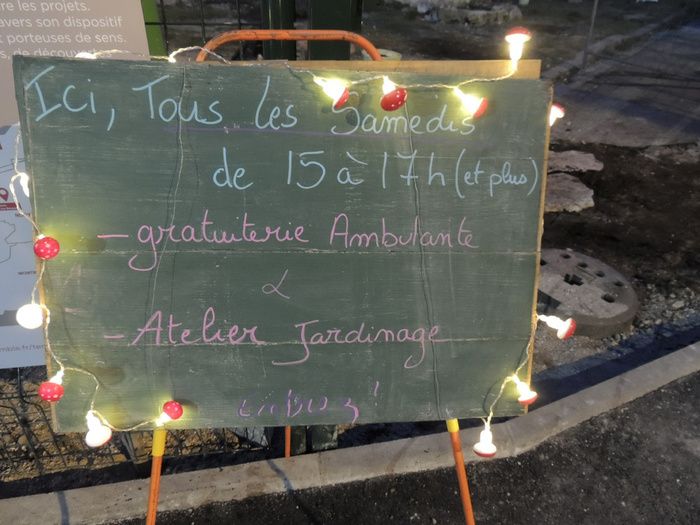 re les projets.
avers son dispositif
porteuses de sens.
Ici, Tous les Samedis
de 15 à 17h (et plus)
- gratuiterie Ambulante
&
- Atelier Jardinage